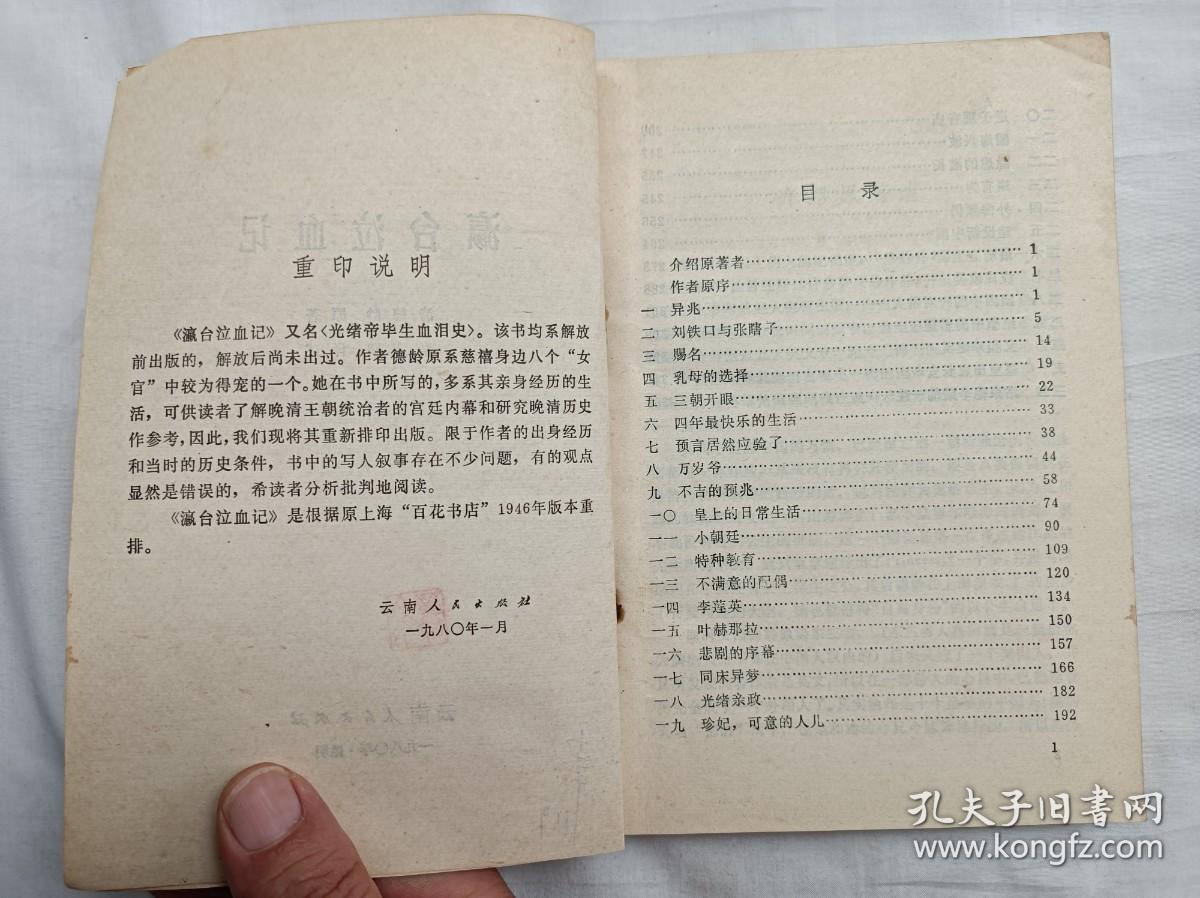 重印说明
《瀛台泣血记》又名〈光绪帝毕生血泪史〉。该书均系解放
前出版的，解放后尚未出过。作者德龄原系慈禧身边八个“女
官”中较为得宠的一个。她在书中所写的，多系其亲身经历的生
活，可供读者了解晚清王朝统治者的宫廷内幕和研究晚清历史
作参考，因此，我们现将其重新排印出版。限于作者的出身经历
和当时的历史条件，书中的写人叙事存在不少问题，有的观点
显然是错误的，希读者分析批判地阅读。
《瀛台泣血记》是根据原上海“百花书店”1946年版本重
排。
云南人民出版社
一九八〇年一月
目录
介绍原著者……1
作者原序……1
一 异兆……1
二 刘铁口与张瞎子……5
三 赐名……14
四 乳母的选择……19
五 三朝开眼……22
六 四年最快乐的生活……33
七 预言居然应验了……38
八 万岁爷……44
九 不吉的预兆……58
一〇 皇上的日常生活……74
一一 小朝廷……90
一二 特种教育……109
一三 不满意的配偶……120
一四 李莲英……134
一五 叶赫那拉……150
一六 悲剧的序幕……157
一七 同床异梦……166
一八 光绪亲政……182
一九 珍妃，可意的人儿……192
1
孔夫子旧书网
www.kongfz.com